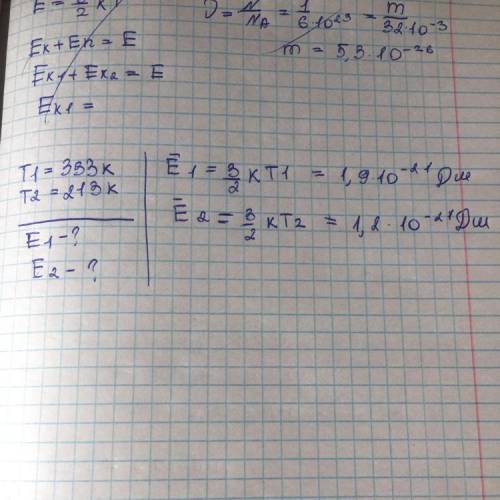 E = 3/2 k
Eк + Eп = E
Eк1 + Eк2 = E
Eк1 =
ν = N/NA = 1/6·10²³ = m/32·10⁻³
m = 5,3·10⁻²⁶
T1 = 333к
T2 = 213к
E1 - ?
E2 - ?
Ē1 = 3/2 кT1 = 1,9 10⁻²¹ Дж
Ē2 = 3/2 кT2 = 1,2·10⁻²¹ Дж